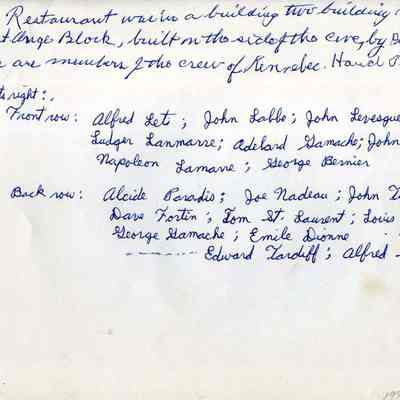 Restaurant was in a building two building
t Ange Block, built on the side of the cive, by
are members of the crew of Kennebec. Hand
right:.
Front row: Alfred Lets; John Labbe; John Levesque
Ludger Lanmarre; Adelard Gamache; John
Napoleon Lamarre; George Bernier
Back row: Alcide Paradis; Joe Nadeau; John
Dave Fortin; Tom St. Laurent; Louis
George Gamache; Emile Dionne
Edward Tardiff; Alfred